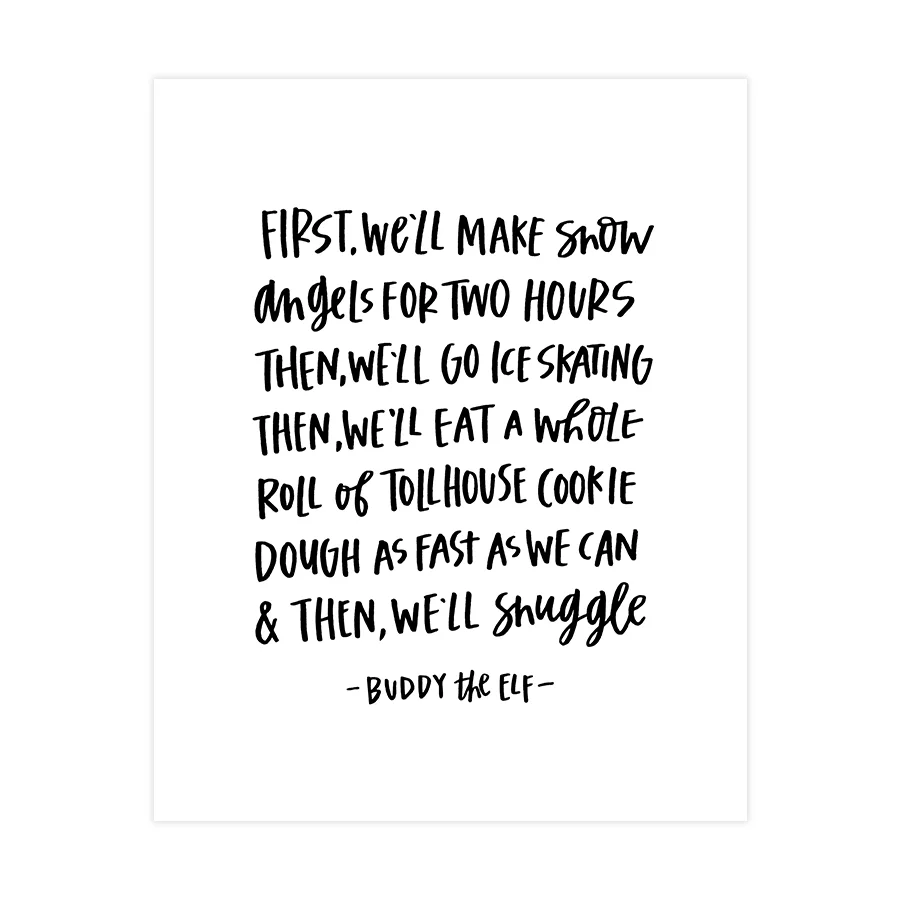 FIRST, We'LL MAKE snow
angels FOR TWO HOURS
THEN, WE'LL GO ICE SKATING
THEN, WE'LL EAT A whOLE
ROLL of TOLLHOUSE COOKIE
DOUGH AS FAST AS WE CAN
& THEN, WE'LL snuggle
-BUDDY the ELF-